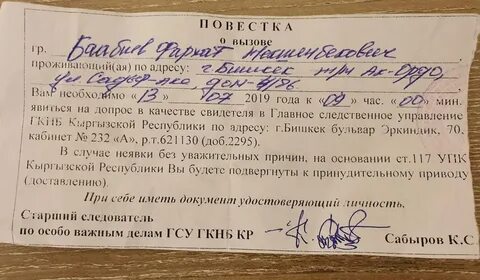 ПОВЕСТКА
о вызове
гр. Баабиев Фархат
проживающий(ая) по адресу: г. Бишкек ж/м Ак-Ордо,
ул дом
Вам необходимо «13» 07 2019 года к «09» час. «00» мин.
явиться на допрос в качестве свидетеля в Главное следственное управление
ГКНБ Кыргызской Республики по адресу: г.Бишкек бульвар Эркиндик, 70,
кабинет № 232 «А», р.т.621130 (доб.2295).
В случае неявки без уважительных причин, на основании ст.117 УПК
Кыргызской Республики Вы будете подвергнуты к принудительному приводу
(доставлению).
При себе иметь документ удостоверяющий личность.
Старший следователь
по особо важным делам ГСУ ГКНБ КР Сабыров К.С